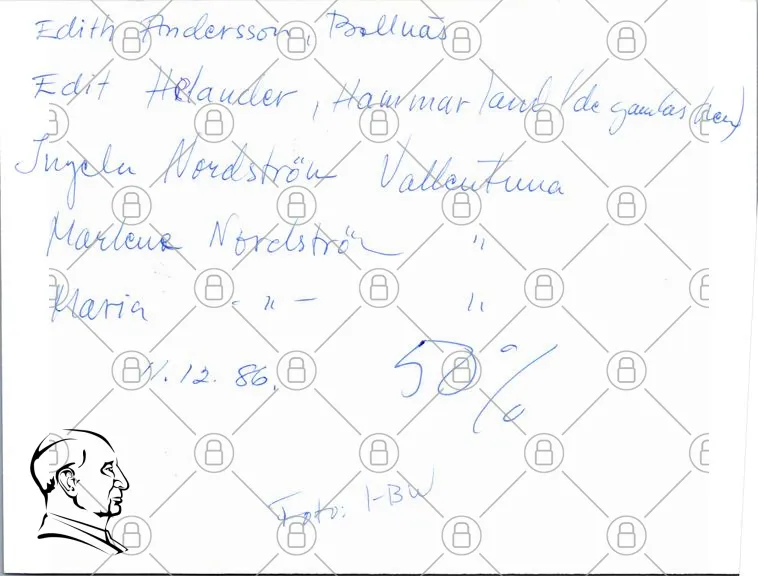 Edith Andersson, Bollnäs
Edit Helander, Hammarland (de gamlas hem)
Ingela Nordström Vallentuna
Marlene Nordström "
Maria - " - "
11.12.86.
50%
Foto: I-BW